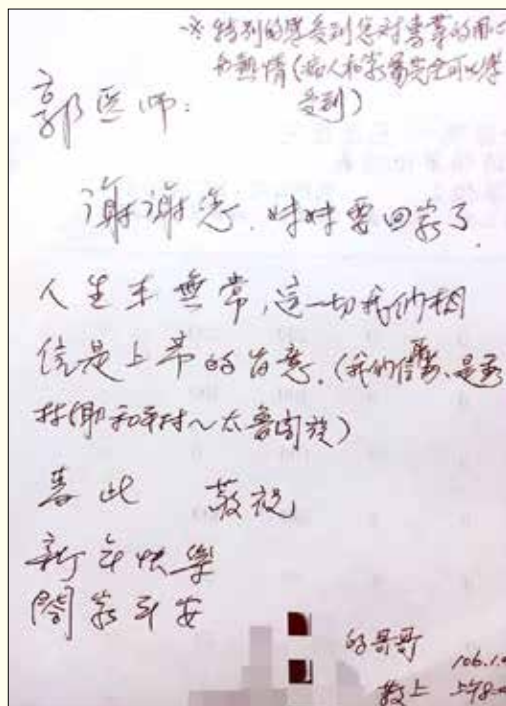 ※特別的感受到您对專業的用心
和熱情(病人和家屬完全可以感
受到)
郭医师:
谢谢您.妹妹要回家了.
人生本無常,这一切我们相
信是上帝的旨意.(我们信
和平村~太魯閣族)
耑此 敬祝
新年快樂
閤家平安
的哥哥
敬上
106.1.
上午8